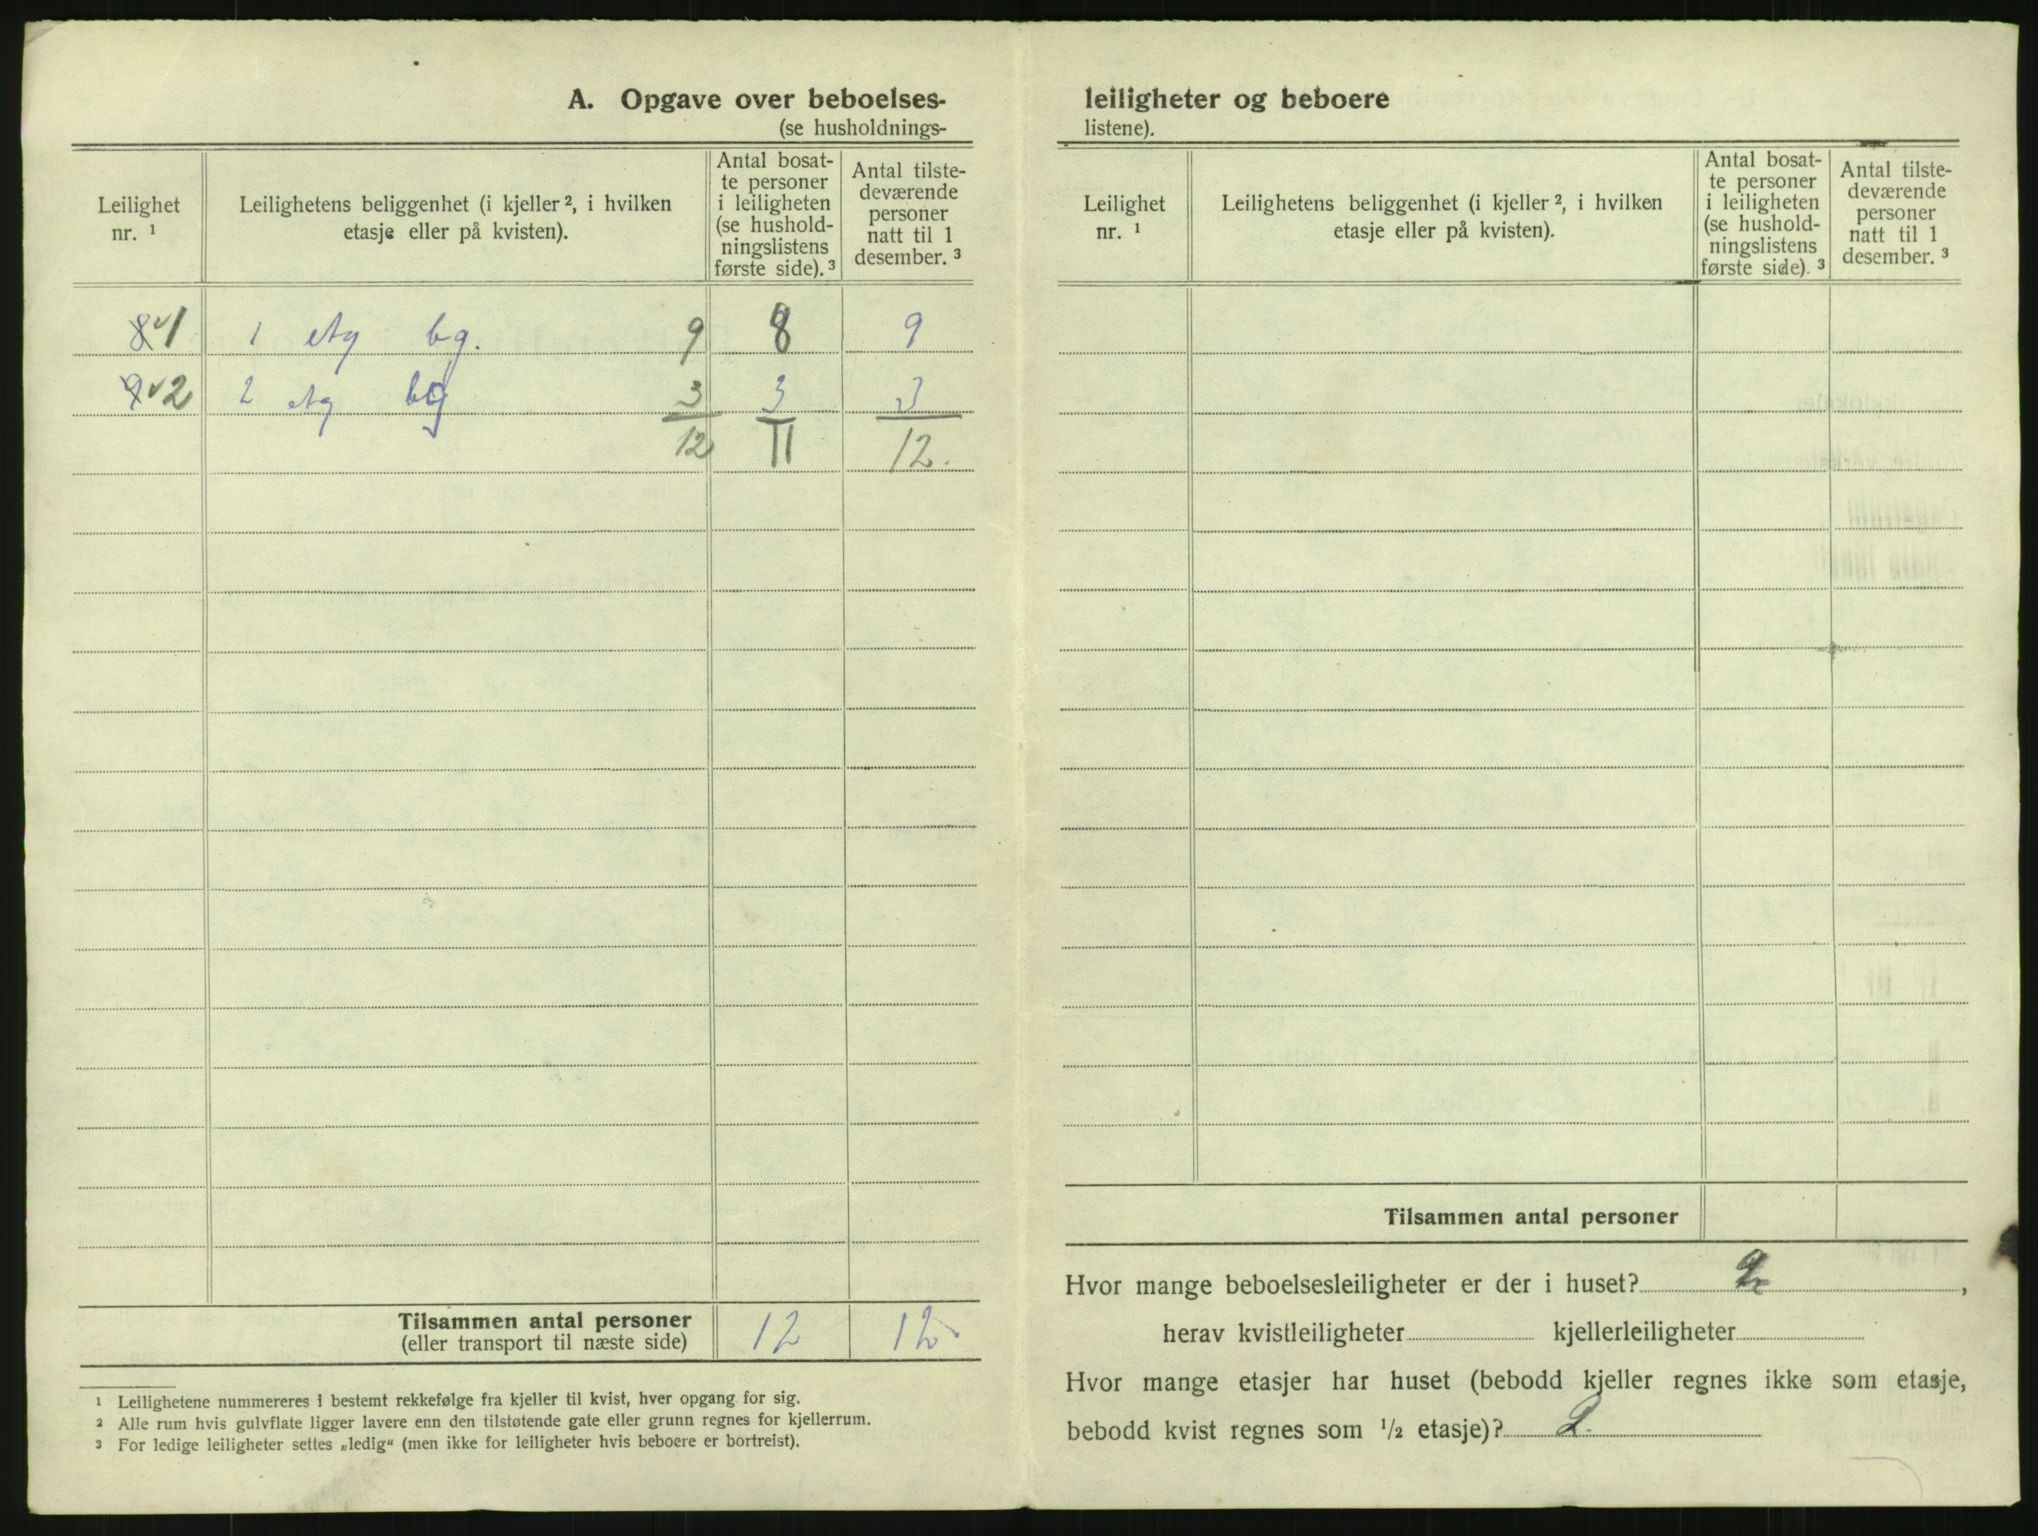 A. Opgave over beboelses-
(se husholdnings-
Leilighet nr. ¹
Leilighetens beliggenhet (i kjeller ², i hvilken etasje eller på kvisten).
Antal bosat-
te personer
i leiligheten
(se hushold-
ningslistens
første side). ³
Antal tilste-
deværende
personer
natt til 1
desember. ³
8 ✓ 1 1 etg bg. 9 8 9
9 ✓ 2 2 etg bg 3 3 3
12 11 12.
Tilsammen antal personer 12 12
(eller transport til næste side)
¹ Leilighetene nummereres i bestemt rekkefølge fra kjeller til kvist, hver opgang for sig.
² Alle rum hvis gulvflate ligger lavere enn den tilstøtende gate eller grunn regnes for kjellerrum.
³ For ledige leiligheter settes „ledig“ (men ikke for leiligheter hvis beboere er bortreist).
leiligheter og beboere
listene).
Leilighet nr. ¹
Leilighetens beliggenhet (i kjeller ², i hvilken etasje eller på kvisten).
Antal bosat-
te personer
i leiligheten
(se hushold-
ningslistens
første side). ³
Antal tilste-
deværende
personer
natt til 1
desember. ³
Tilsammen antal personer
Hvor mange beboelsesleiligheter er der i huset? 2,
herav kvistleiligheter kjellerleiligheter
Hvor mange etasjer har huset (bebodd kjeller regnes ikke som etasje,
bebodd kvist regnes som ½ etasje)? 2.